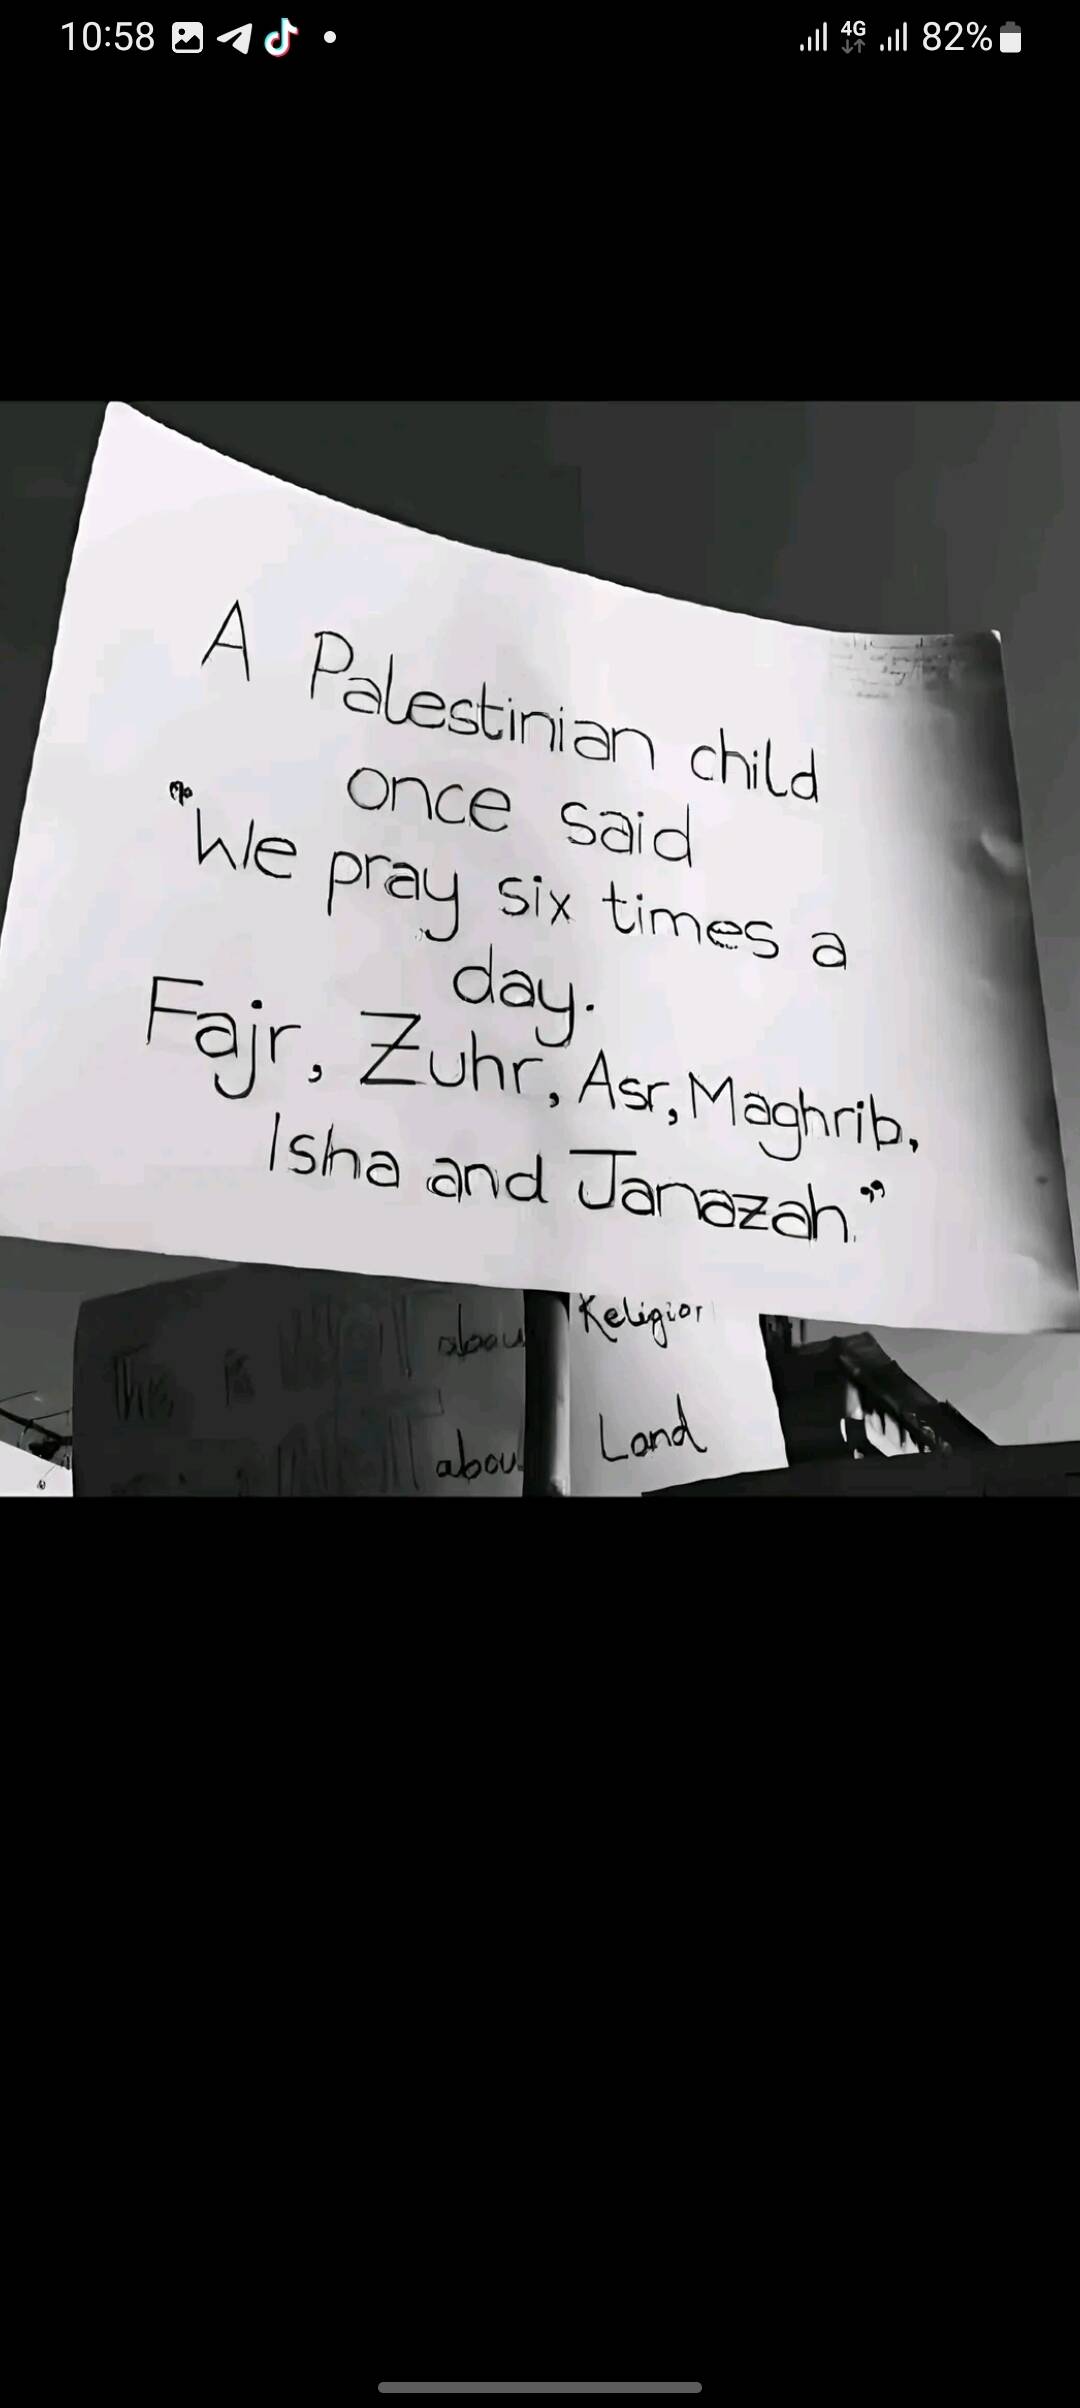 10:58
4G
82%
A Palestinian child
once said
"We pray six times a
day.
Fajr, Zuhr, Asr, Maghrib,
Isha and Janazah."
Religion
Land